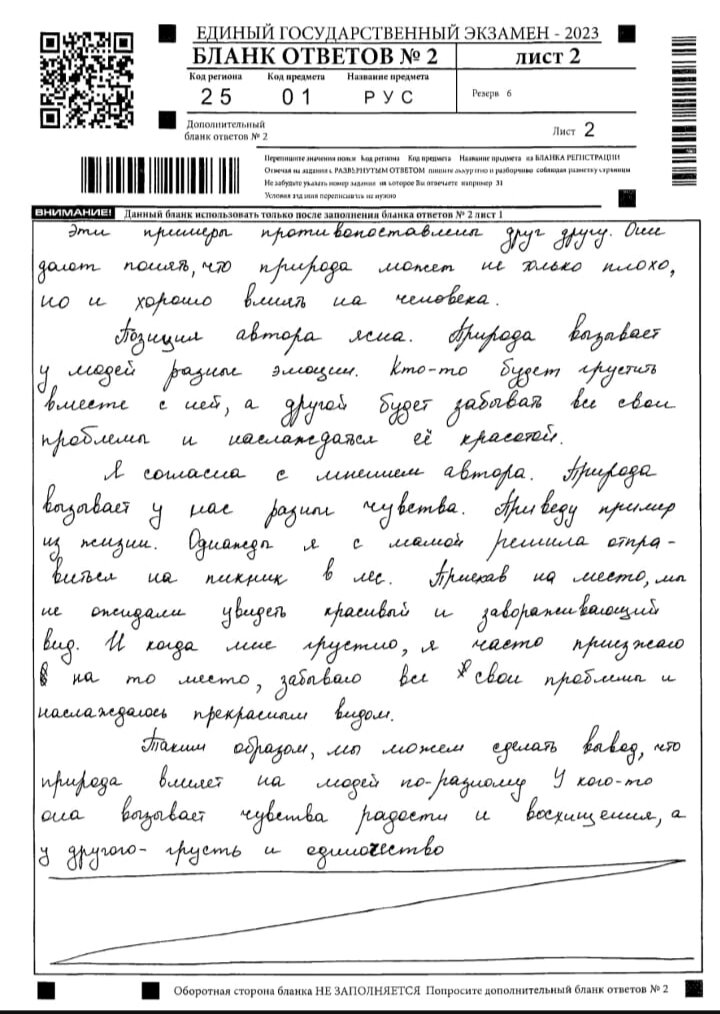 ЕДИНЫЙ ГОСУДАРСТВЕННЫЙ ЭКЗАМЕН - 2023
БЛАНК ОТВЕТОВ № 2 лист 2
Код региона Код предмета Название предмета
25 01 РУС Резерв 6
Дополнительный
бланк ответов № 2 Лист 2
Перепишите значения полей Код региона Код предмета Название предмета из БЛАНКА РЕГИСТРАЦИИ
Отвечая на задания с РАЗВЕРНУТЫМ ОТВЕТОМ пишите аккуратно и разборчиво соблюдая разметку страницы
Не забудьте указать номер задания на которое Вы отвечаете например 31
Условия задания переписывать не нужно
ВНИМАНИЕ! Данный бланк использовать только после заполнения бланка ответов № 2 лист 1
Эти примеры противопоставлены друг другу. Они
дают понять, что природа может не только плохо,
но и хорошо влиять на человека.
Позиция автора ясна. Природа вызывает
у людей разные эмоции. Кто-то будет грустить
вместе с ней, а другой будет забывать все свои
проблемы и наслаждатся её красотой.
Я согласна с мнением автора. Природа
вызывает у нас разные чувства. Приведу пример
из жизни. Однажды я с мамой решила отпра-
виться на пикник в лес. Приехав на место, мы
не ожидали увидеть красивый и завораживающий
вид. И когда мне грустно, я часто приезжаю
на то место, забываю все свои проблемы и
наслаждаюсь прекрасным видом.
Таким образом, мы можем сделать вывод, что
природа влияет на людей по-разному У кого-то
она вызывает чувства радости и восхищения, а
у другого- грусть и одиночество
Оборотная сторона бланка НЕ ЗАПОЛНЯЕТСЯ Попросите дополнительный бланк ответов № 2